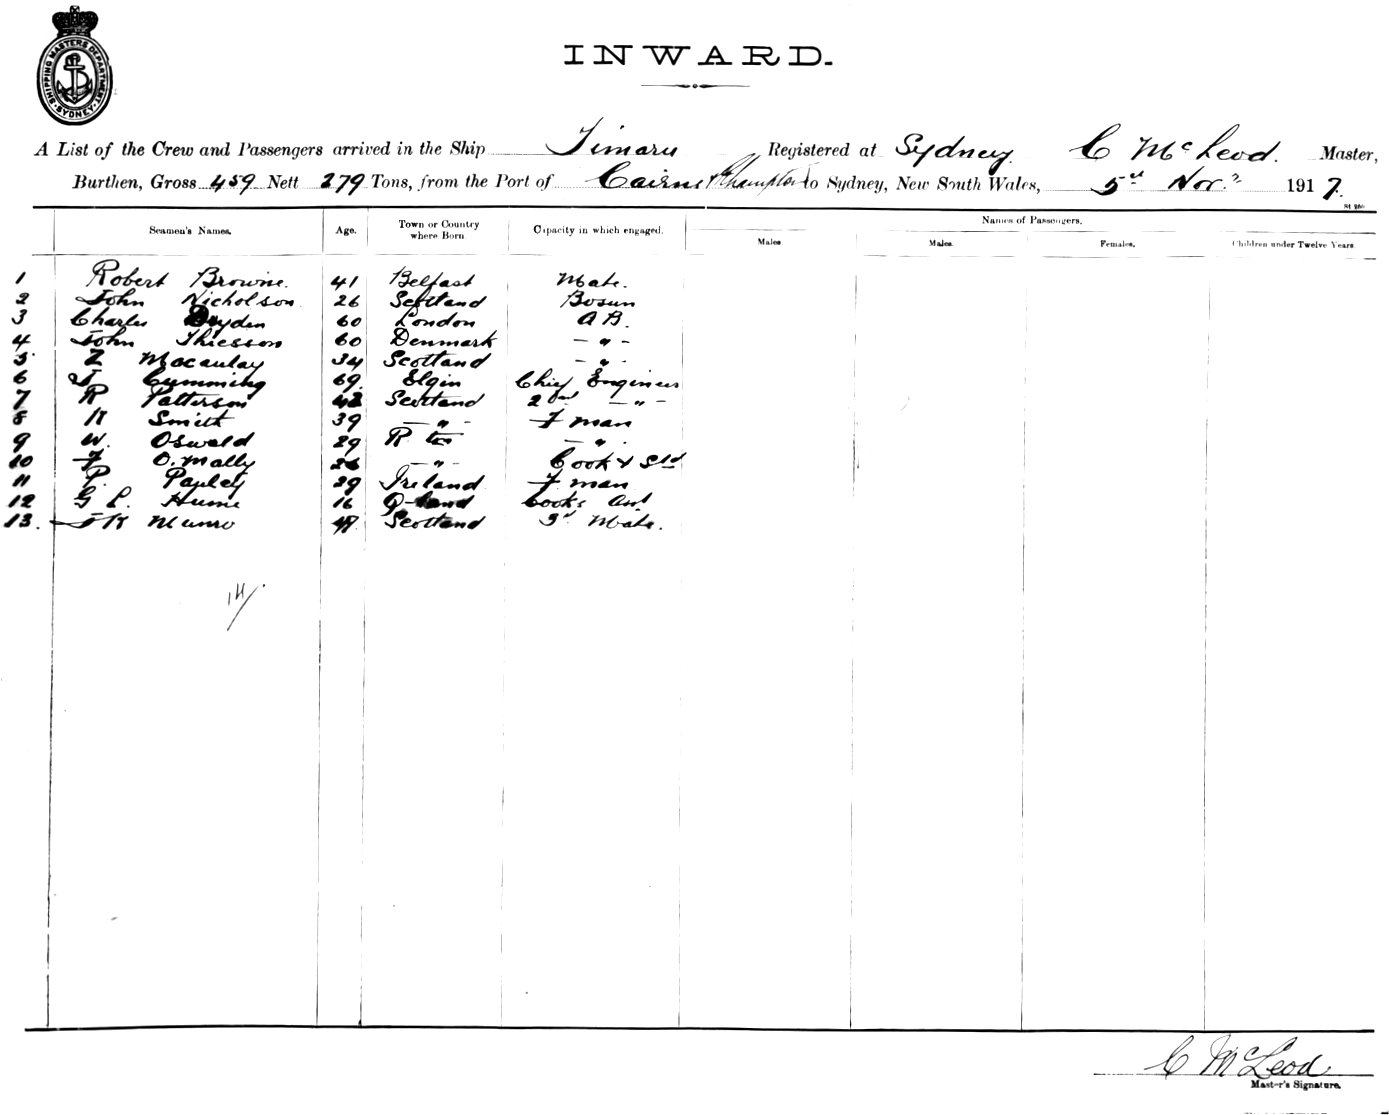 SHIPPING MASTERS DEPARTMENT. SYDNEY
INWARD.
A List of the Crew and Passengers arrived in the Ship Timaru Registered at Sydney C McLeod. Master,
Burthen, Gross 459 Nett 279 Tons, from the Port of Cairns & Rhampton to Sydney, New South Wales, 5th Nov. 1917.
Seamen's Names. Age. Town or Country where Born Capacity in which engaged. Names of Passengers.
Males. Males. Females. Children under Twelve Years.
1 Robert Browne. 41 Belfast Mate.
2 John Nicholson 26 Scotland Bosun
3 Charles Dryden 60 London A B.
4 John Thiesson 60 Denmark — " —
5 Macaulay 34 Scotland — " —
6 J Cumming 69 Elgin Chief Engineer
7 R Patterson 42 Scotland 2nd — " —
8 Smith 39 — " — F man
9 W. Oswald 29 R ton — " —
10 F O.Mally — " — Cook & Std
11 P. Papley 29 Ireland F man
12 G L. Hume 16 Q-land Cooks Asst
13. J K Munro 47 Scotland 3rd Mate.
14/
C McLeod
Master's Signature.